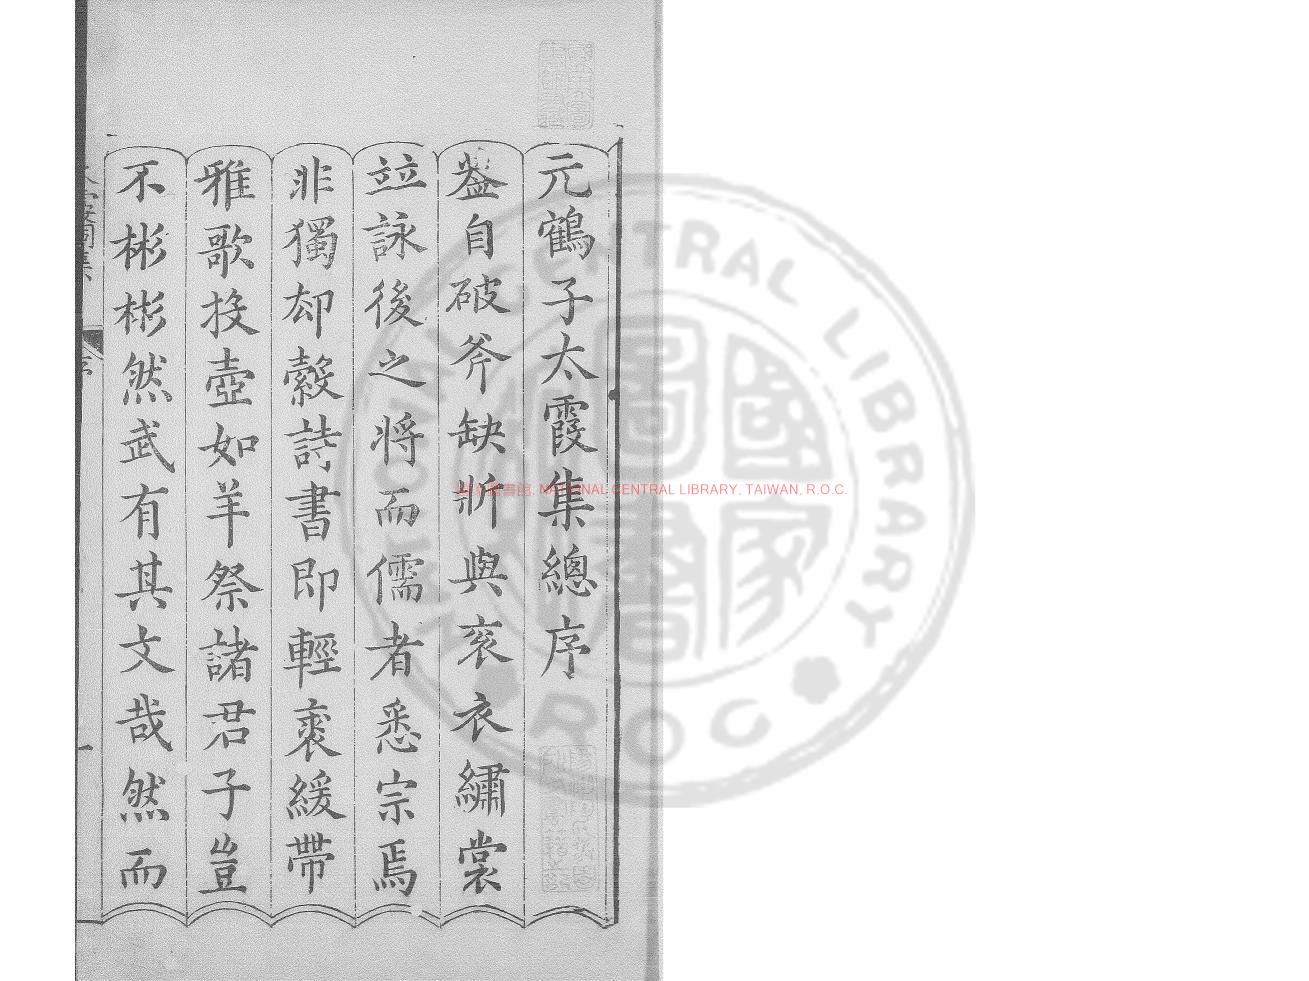 元鶴子太霞集總序
盖自破斧缺斨與衮衣繡裳
竝詠後之將而儒者悉宗焉
非獨却縠詩書即輕裘緩帶
雅歌投壺如羊祭諸君子豈
不彬彬然武有其文哉然而
序
一
NATIONAL CENTRAL LIBRARY, TAIWAN, R.O.C.
NATIONAL CENTRAL LIBRARY
ROC
國家圖書館